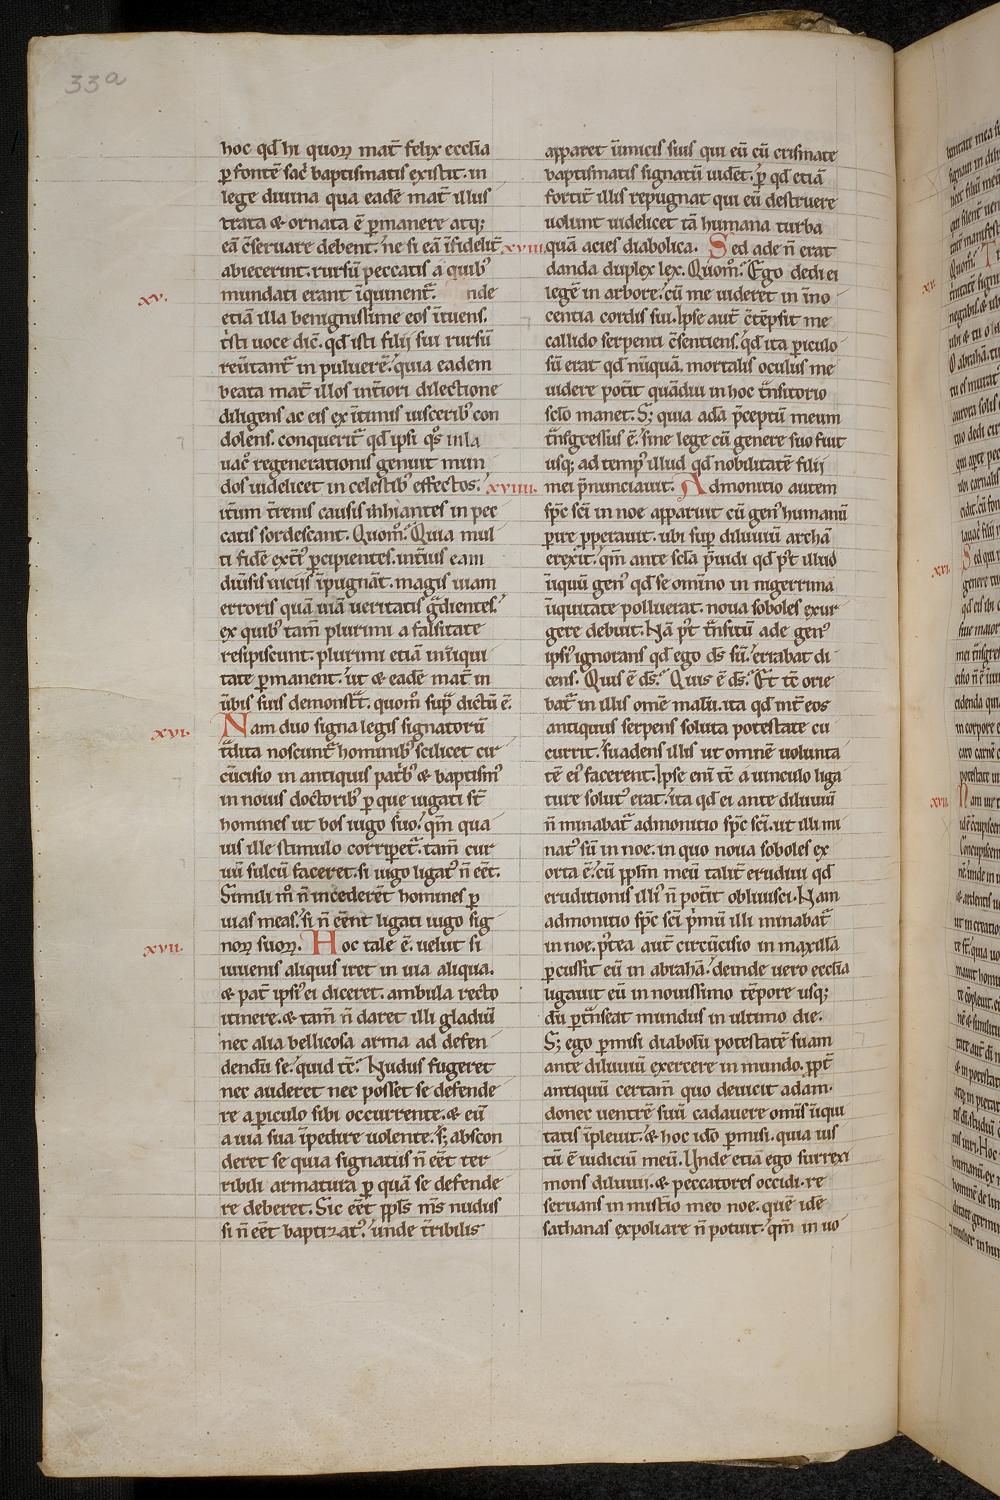 33a
hoc qd̄ hi quoꝝ mat̄ felix eccl̄ia
ꝑ fontē sac̄ baptismatis existit. in
lege diuina qua eadē mat̄ illus
trata & ornata ē ꝑmanere atq;
eā c̄seruare debent. ne si eā īfidelit̄
abiecerint. rursū peccatis a quibꝰ
xv. mundati erant īquinent̄. nde
etiā illa benignissime eos ītuens.
t̄sti uoce dic̄. qd̄ isti filij sui rursū
reūtant̄ in puluerē. quia eadem
beata mat̄ illos int̄iori dilectione
diligens ac eis ex ītimis uisceribꝰ con
dolens. conquerit̄ qd̄ ipsi q̄s in la
uac̄ regenerationis genuit mun
dos uidelicet in celestibꝰ effectos.
it̄um t̄renis causis inhiantes in pec
catis sordescant. Quom̄. Quia mul
ti fidē ext̄ꝰ ꝑcipientes. int̄ius eam
diūsis uiciis īpugnāt. magis uiam
erroris quā uiā ueritatis ḡdientes.
ex quibꝰ tam̄ plurimi a falsitate
resipiscunt. plurimi etiā in iniqui
tate ꝑmanent. ut & eadē mat̄ in
ūbis suis demonst̄t. quom̄ sup̄ dictū ē.
xvi. Nam duo signa legis signatorū
t̄dita noscunt̄ hominibꝰ scilicet cir
cūcisio in antiquis pat̄bꝰ & baptismꝰ
in nouis doctoribꝰ ꝑ que iugati st̄
homines ut bos iugo suo. qm̄ qua
uis ille stimulo corripet̄. tam̄ cur
uū sulcū faceret. si iugo ligatꝰ n̄ eēt.
Simili m̄ n̄ incederēt homines ꝑ
uias meas. si n̄ eēnt ligati iugo sig
xvii. noꝝ suoꝝ. Hoc tale ē. uelut si
iuuenis aliquis iret in uia aliqua.
& pat̄ ipsiꝰ ei diceret. ambula recto
itinere. & tam̄ n̄ daret illi gladiū
nec alia bellicosa arma ad defen
dendū se. quid tē. Nudus fugeret
nec auderet nec posset se defende
re a ꝑiculo sibi occurrente. & eū
a uia sua īpedire uolente. s; abscon
deret se quia signatus n̄ eēt ter
ribili armatura ꝑ quā se defende
re deberet. Sic eēt pp̄ls m̄s nudus
si n̄ eēt baptizatꝰ. unde t̄ribilis
apparet īnimicis suis qui eū cū crismate
baptismatis signatū uidēt. ꝑ qd̄ etiā
fortit̄ illis repugnat qui eū destruere
uolunt uidelicet tā humana turba
xviii. quā acies diabolica. Sed ade n̄ erat
danda duplex lex. Quom̄. Ego dedi ei
legē in arbore. cū me uideret in īno
centia cordis sui. Ipse aut̄ c̄tēpsit me
callido serpenti c̄sentiens. qd̄ ita ꝑiculo
sū erat qd̄ nūquā mortalis oculus me
uidere pot̄it quādiu in hoc t̄nsitorio
sc̄lo manet. S; quia adā p̄ceptū meum
t̄nsgressus ē. sine lege cū genere suo fuit
usq; ad tempꝰ illud qd̄ nobilitatē filij
xviiii. mei p̄nunciauit. Admonitio autem
sp̄c sc̄i in noe apparuit cū genꝰ humanū
ꝑire ꝓperauit. ubi sup̄ diluuiū archā
erexit. qm̄ ante sc̄la p̄uidi qd̄ p̄t illud
īniquū genꝰ qd̄ se om̄ino in nigerrima
īniquitate polluerat. noua soboles exur
gere debuit. Nā p̄t t̄nsitū ade genꝰ
ipsiꝰ ignorans qd̄ ego d̄s sū. errabat di
cens. Quis ē d̄s. Quis ē d̄s. Et tē orie
bat̄ in illis omē malū. ita qd̄ int̄ eos
antiquus serpens soluta potestate cu
currit. suadens illis ut omnē uolunta
tē eiꝰ facerent. Ipse eni tē a uinculo liga
ture solutꝰ erat. ita qd̄ ei ante diluuiū
n̄ minabat̄ admonitio sp̄c sc̄i. ut illi mi
natꝰ sū in noe. in quo noua soboles ex
orta ē. cū pp̄lm̄ meū talit̄ erudiui qd̄
eruditionis illiꝰ n̄ pot̄it obliuisci. Nam
admonitio sp̄c sc̄i p̄mū illi minabat̄
in noe. p̄tea aut̄ circūcisio in maxillā
ꝑcussit eū in abrahā. deinde uero eccl̄ia
ligauit eū in nouissimo tēpore usq;
dū ꝑt̄nseat mundus in ultimo die.
S; ego ꝑmisi diabolū potestatē suam
ante diluuiū exercere in mundo. ꝓpt̄
antiquū certam̄ quo deuicit adam.
donec uentrē suū cadauere om̄is īniqui
tatis īpleuit. & hoc idō ꝑmisi. quia ius
tū ē iudiciū meū. Unde etiā ego surrexi
mons diluuij. & peccatores occidi. re
seruans in mist̄io meo noe. quē idē
sathanas expoliare n̄ potuit. qm̄ in uo